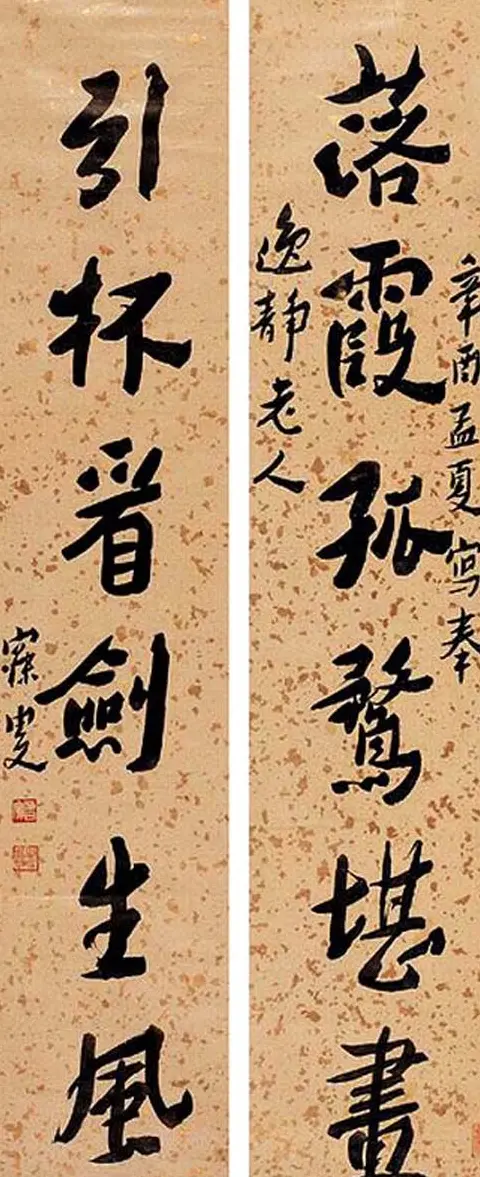 落霞孤鹜堪畫
辛酉孟夏寫奉
逸靜老人
引杯看劍生風
寐叟